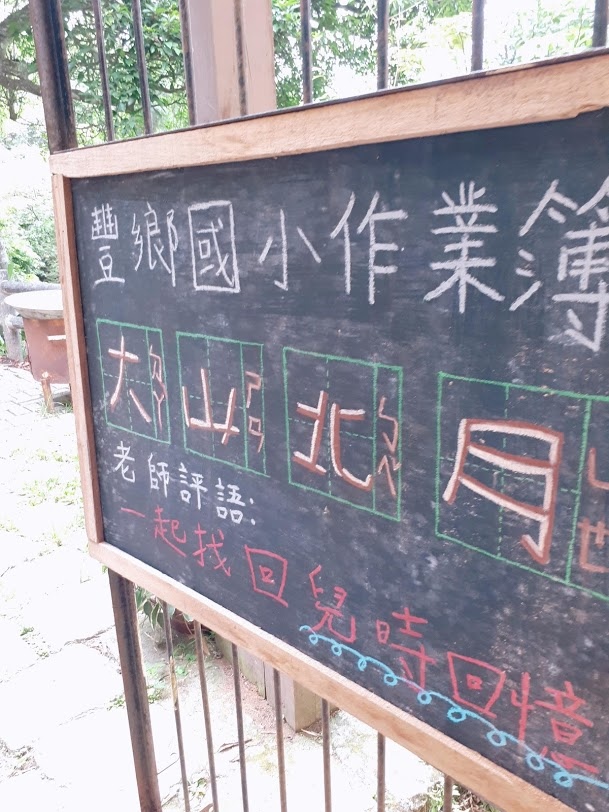 豐鄉國小作業簿
大 山 北ㄅㄟˇ 月ㄩㄝ
老師評語:
一起找回兒時回憶